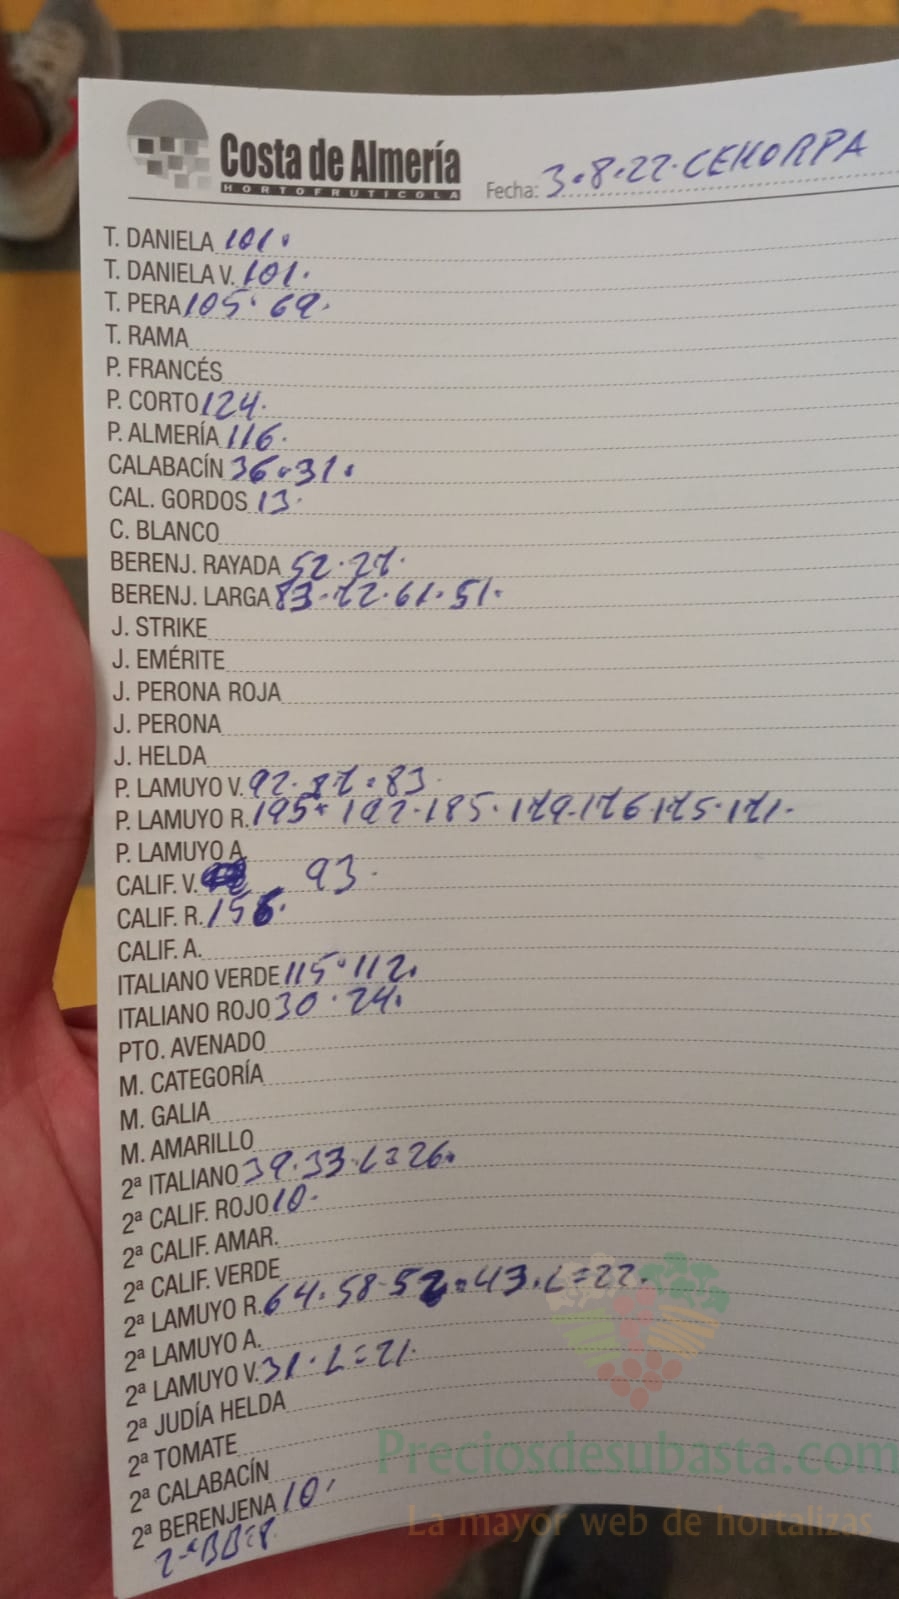 Costa de Almería
HORTOFRUTICOLA
Fecha: 3.8.22. CEHORPA
T. DANIELA 101.
T. DANIELA V. 101.
T. PERA 105. 69.
T. RAMA
P. FRANCÉS
P. CORTO 124.
P. ALMERÍA 116.
CALABACÍN 36.31.
CAL. GORDOS 13.
C. BLANCO
BERENJ. RAYADA 52.27.
BERENJ. LARGA 83.72.61.51.
J. STRIKE
J. EMÉRITE
J. PERONA ROJA
J. PERONA
J. HELDA
P. LAMUYO V. 92.87.83.
P. LAMUYO R. 195. 192.185.179.176.175.171.
P. LAMUYO A.
CALIF. V. 93.
CALIF. R. 156.
CALIF. A.
ITALIANO VERDE 115.112.
ITALIANO ROJO 30.24.
PTO. AVENADO
M. CATEGORÍA
M. GALIA
M. AMARILLO
2ª ITALIANO 39.33.L=26.
2ª CALIF. ROJO 10.
2ª CALIF. AMAR.
2ª CALIF. VERDE
2ª LAMUYO R. 64.58.52.43.L=22.
2ª LAMUYO A.
2ª LAMUYO V. 31.L=21.
2ª JUDÍA HELDA
2ª TOMATE
2ª CALABACÍN
2ª BERENJENA 10.
Preciosdesubasta.com
La mayor web de hortalizas